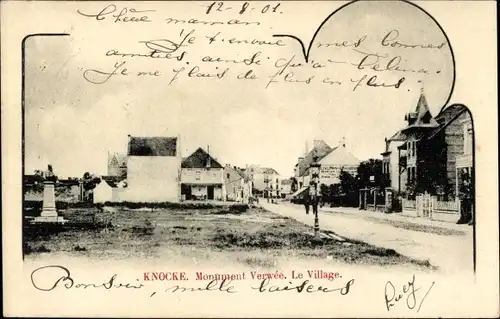 12-8-01.
Chère maman
Je t'envoie mes bonnes
amitiés ainsi qu'à Célina.
Je me plais de plus en plus.
KNOCKE. Monument Verwée. Le Village.
Bonsoir, mille baisers
Lucy